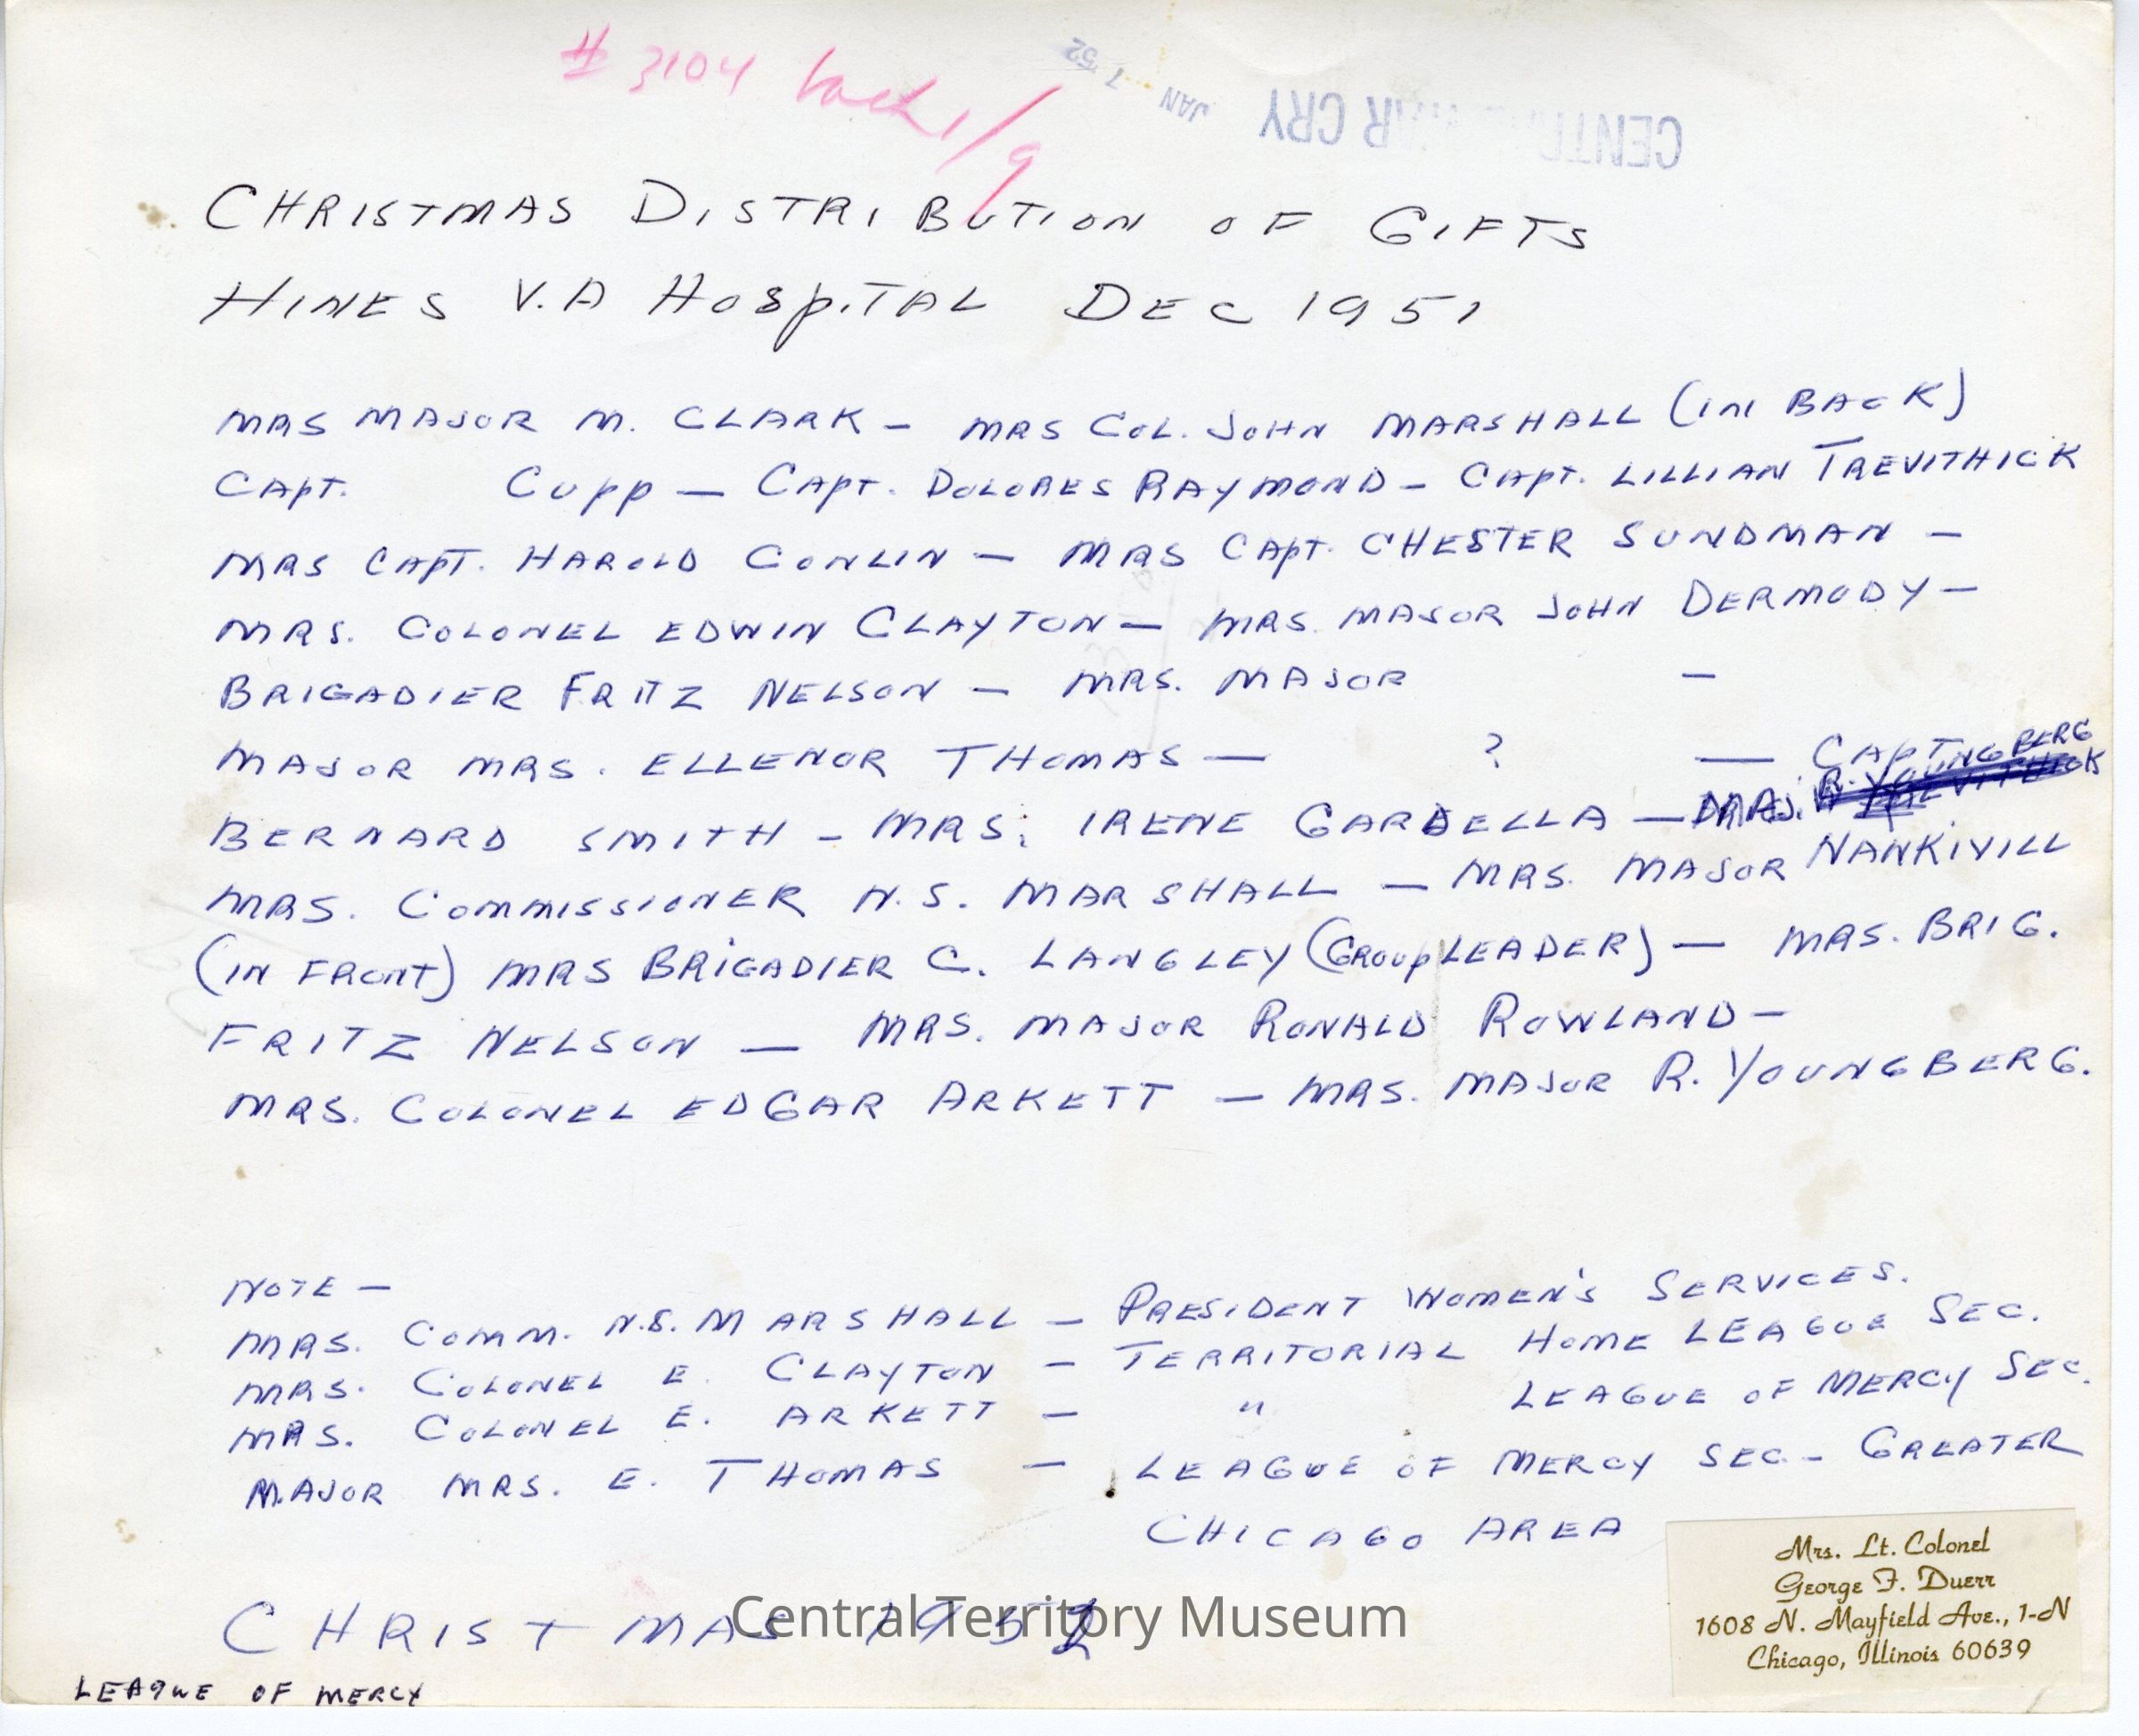 # 3104 back 1/9
JAN 7 '52
CENTRAL WAR CRY
CHRISTMAS DISTRIBUTION OF GIFTS
HINES V.A HOSPITAL DEC 1951
MRS MAJOR M. CLARK — MRS COL. JOHN MARSHALL (IN BACK)
CAPT. CUPP — CAPT. DOLORES RAYMOND — CAPT. LILLIAN TREVITHICK
MRS CAPT. HAROLD CONLIN — MRS CAPT. CHESTER SUNDMAN —
MRS. COLONEL EDWIN CLAYTON — MRS. MAJOR JOHN DERMODY —
BRIGADIER FRITZ NELSON — MRS. MAJOR —
MAJOR MRS. ELLENOR THOMAS — ? — CAPT
BERNARD SMITH — MRS. IRENE GARDELLA — MRS.
MRS. COMMISSIONER N.S. MARSHALL — MRS. MAJOR NANKIVILL
(IN FRONT) MRS BRIGADIER C. LANGLEY (GROUP LEADER) — MRS. BRIG.
FRITZ NELSON — MRS. MAJOR RONALD ROWLAND —
MRS. COLONEL EDGAR ARKETT — MRS. MAJOR R. YOUNGBERG.
NOTE —
MRS. COMM. N.S. MARSHALL — PRESIDENT WOMEN'S SERVICES.
MRS. COLONEL E. CLAYTON — TERRITORIAL HOME LEAGUE SEC.
MRS. COLONEL E. ARKETT — " LEAGUE OF MERCY SEC.
MAJOR MRS. E. THOMAS — LEAGUE OF MERCY SEC. — GREATER
CHICAGO AREA
CHRISTMAS 1951
LEAGUE OF MERCY
Central Territory Museum
Mrs. Lt. Colonel
George F. Duerr
1608 N. Mayfield Ave., 1-N
Chicago, Illinois 60639